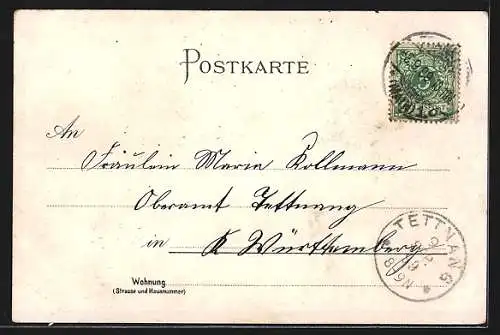 POSTKARTE
An
Fräulein Maria Kollmann
Oberamt Tettnang
in K Württemberg
TETTNANG
Wohnung
(Strasse und Hausnummer)